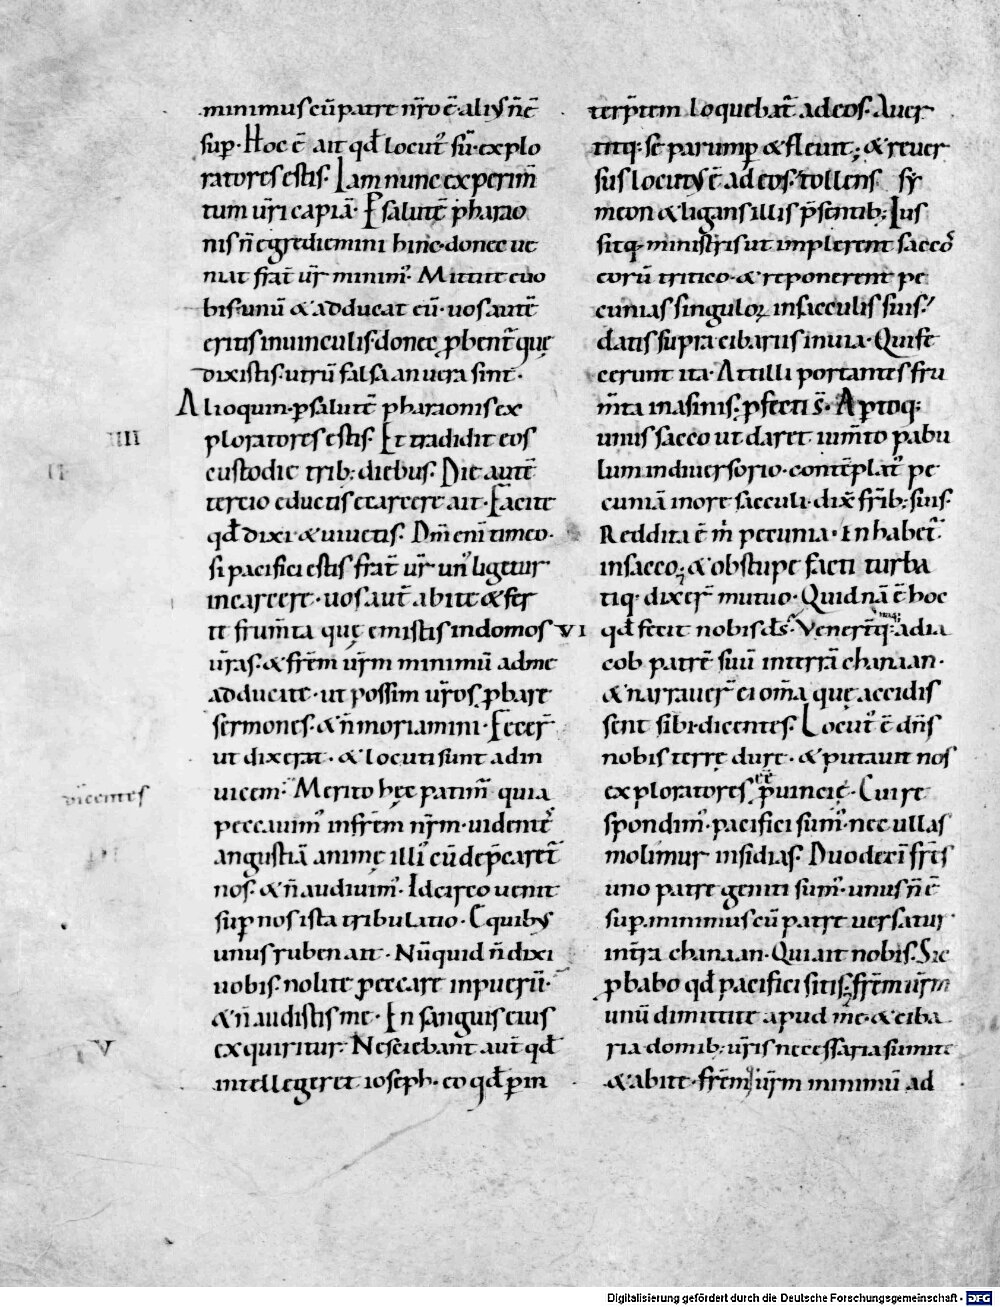 minimus cū patre nr̄o ē. aliꝰ n̄ ē
suꝑ. Hoc ē ait qđ locut᾽ sū. explo
ratores estis. Iam nunc experim̄
tum ur̄i capiā. Ꝑ salutē pharao
nis n̄ egrediemini hinc. donec ue
niat frat̄ ur̄ minim᾽. Mittite euo
bis. unū & adducat eū. uos aut̄
eritis inuinculis. donec ꝓbent̄ quę
dixistis. utrū falsa an uera sint.
Alioquin. ꝑ salutē pharaonis ex
IIII
ploratores estis. Et tradidit eos
custodię trib; diebus. Die autē
tertio eductis ecarcere ait. Facite
qđ dixi & uiuetis. Dm̄ eni̅ timeo.
si pacifici estis frat̄ ur̄ un᾽ ligetur
incarcere. uos aut̄ abite & fer
te frum̄ta quę emistis indomos
ur̄as. & fr̄em ur̄m minimū adme
adducite. ut possim ur̄os ꝓbare
sermones. & n̄ moriamini. Fecer̄
ut dixerat. & locuti sunt adin
uicem. Merito hęc patim᾽ quia
uicentes
peccauim᾽ infr̄em nr̄m. uident᾽
angustiā animę illi᾽ cū dep̄caret̄
nos. & n̄ audiuim᾽. Idcirco uenit
suꝑ nos ista tribulatio. E quibꝰ
unus ruben ait. Nūquid n̄ dixi
uobis. nolite peccare inpuerū.
& n̄ audistis me. En sanguis eius
V
exquiritur. Nesciebant aut̄ qđ
intellegeret ioseph. eo qđ ꝑ in
terp̄tem loquebat̄ ad eos. Auer
titq; sē parumꝑ & fleuit. & reuer
sus locutꝰ ē ad eos. Tollens sy
meon & ligans illis p̄sentib; Ius
sitq; ministris ut implerent sacco᾽
eorū tritico. & reponerent pe
cunias singuloꝝ insacculis suis.
datis supra cibariis inuia. Qui fe
cerunt ita. At illi portantes fru
m̄ta inasinis. ꝓfecti s̄. Aꝑtoq;
unus sacco ut daret ium̄to pabu
lum indiuersorio. contēplat᾽ pe
cuniā inore sacculi. dix̄ fr̄ib; suis.
Reddita ē m̄ pecunia. en habet̄
insacco. & obstupefacti turba
tiq; dixer̄ mutuo. Quid nā ē hoc
VI
qđ fecit nobis ds̄. Venerūtq; adia
cob patrē suū interrā chanaan.
& narrauer̄ ei om̄a quę accidis
sent sibi. dicentes. Locut᾽ ē dn̄s
nobis terrę dure. & putauit nos
exploratores ēē ꝓuincię. Cui re
spondim᾽. pacifici sum᾽. nec ullas
molimur insidias. Duodeci̅ fr̄s
uno patre geniti sum᾽. unus n̄ ē
suꝑ. minimus cū patre uersatur
int̄ra chanaan. Qui ait nobis. Sic
ꝓbabo qđ pacifici sitis. fr̄em ur̄m
unū dimittite apud me. & ciba
ria domib; ur̄is necessaria sumite
& abite. fr̄em ur̄m minimū ad
Digitalisierung gefördert durch die Deutsche Forschungsgemeinschaft - DFG